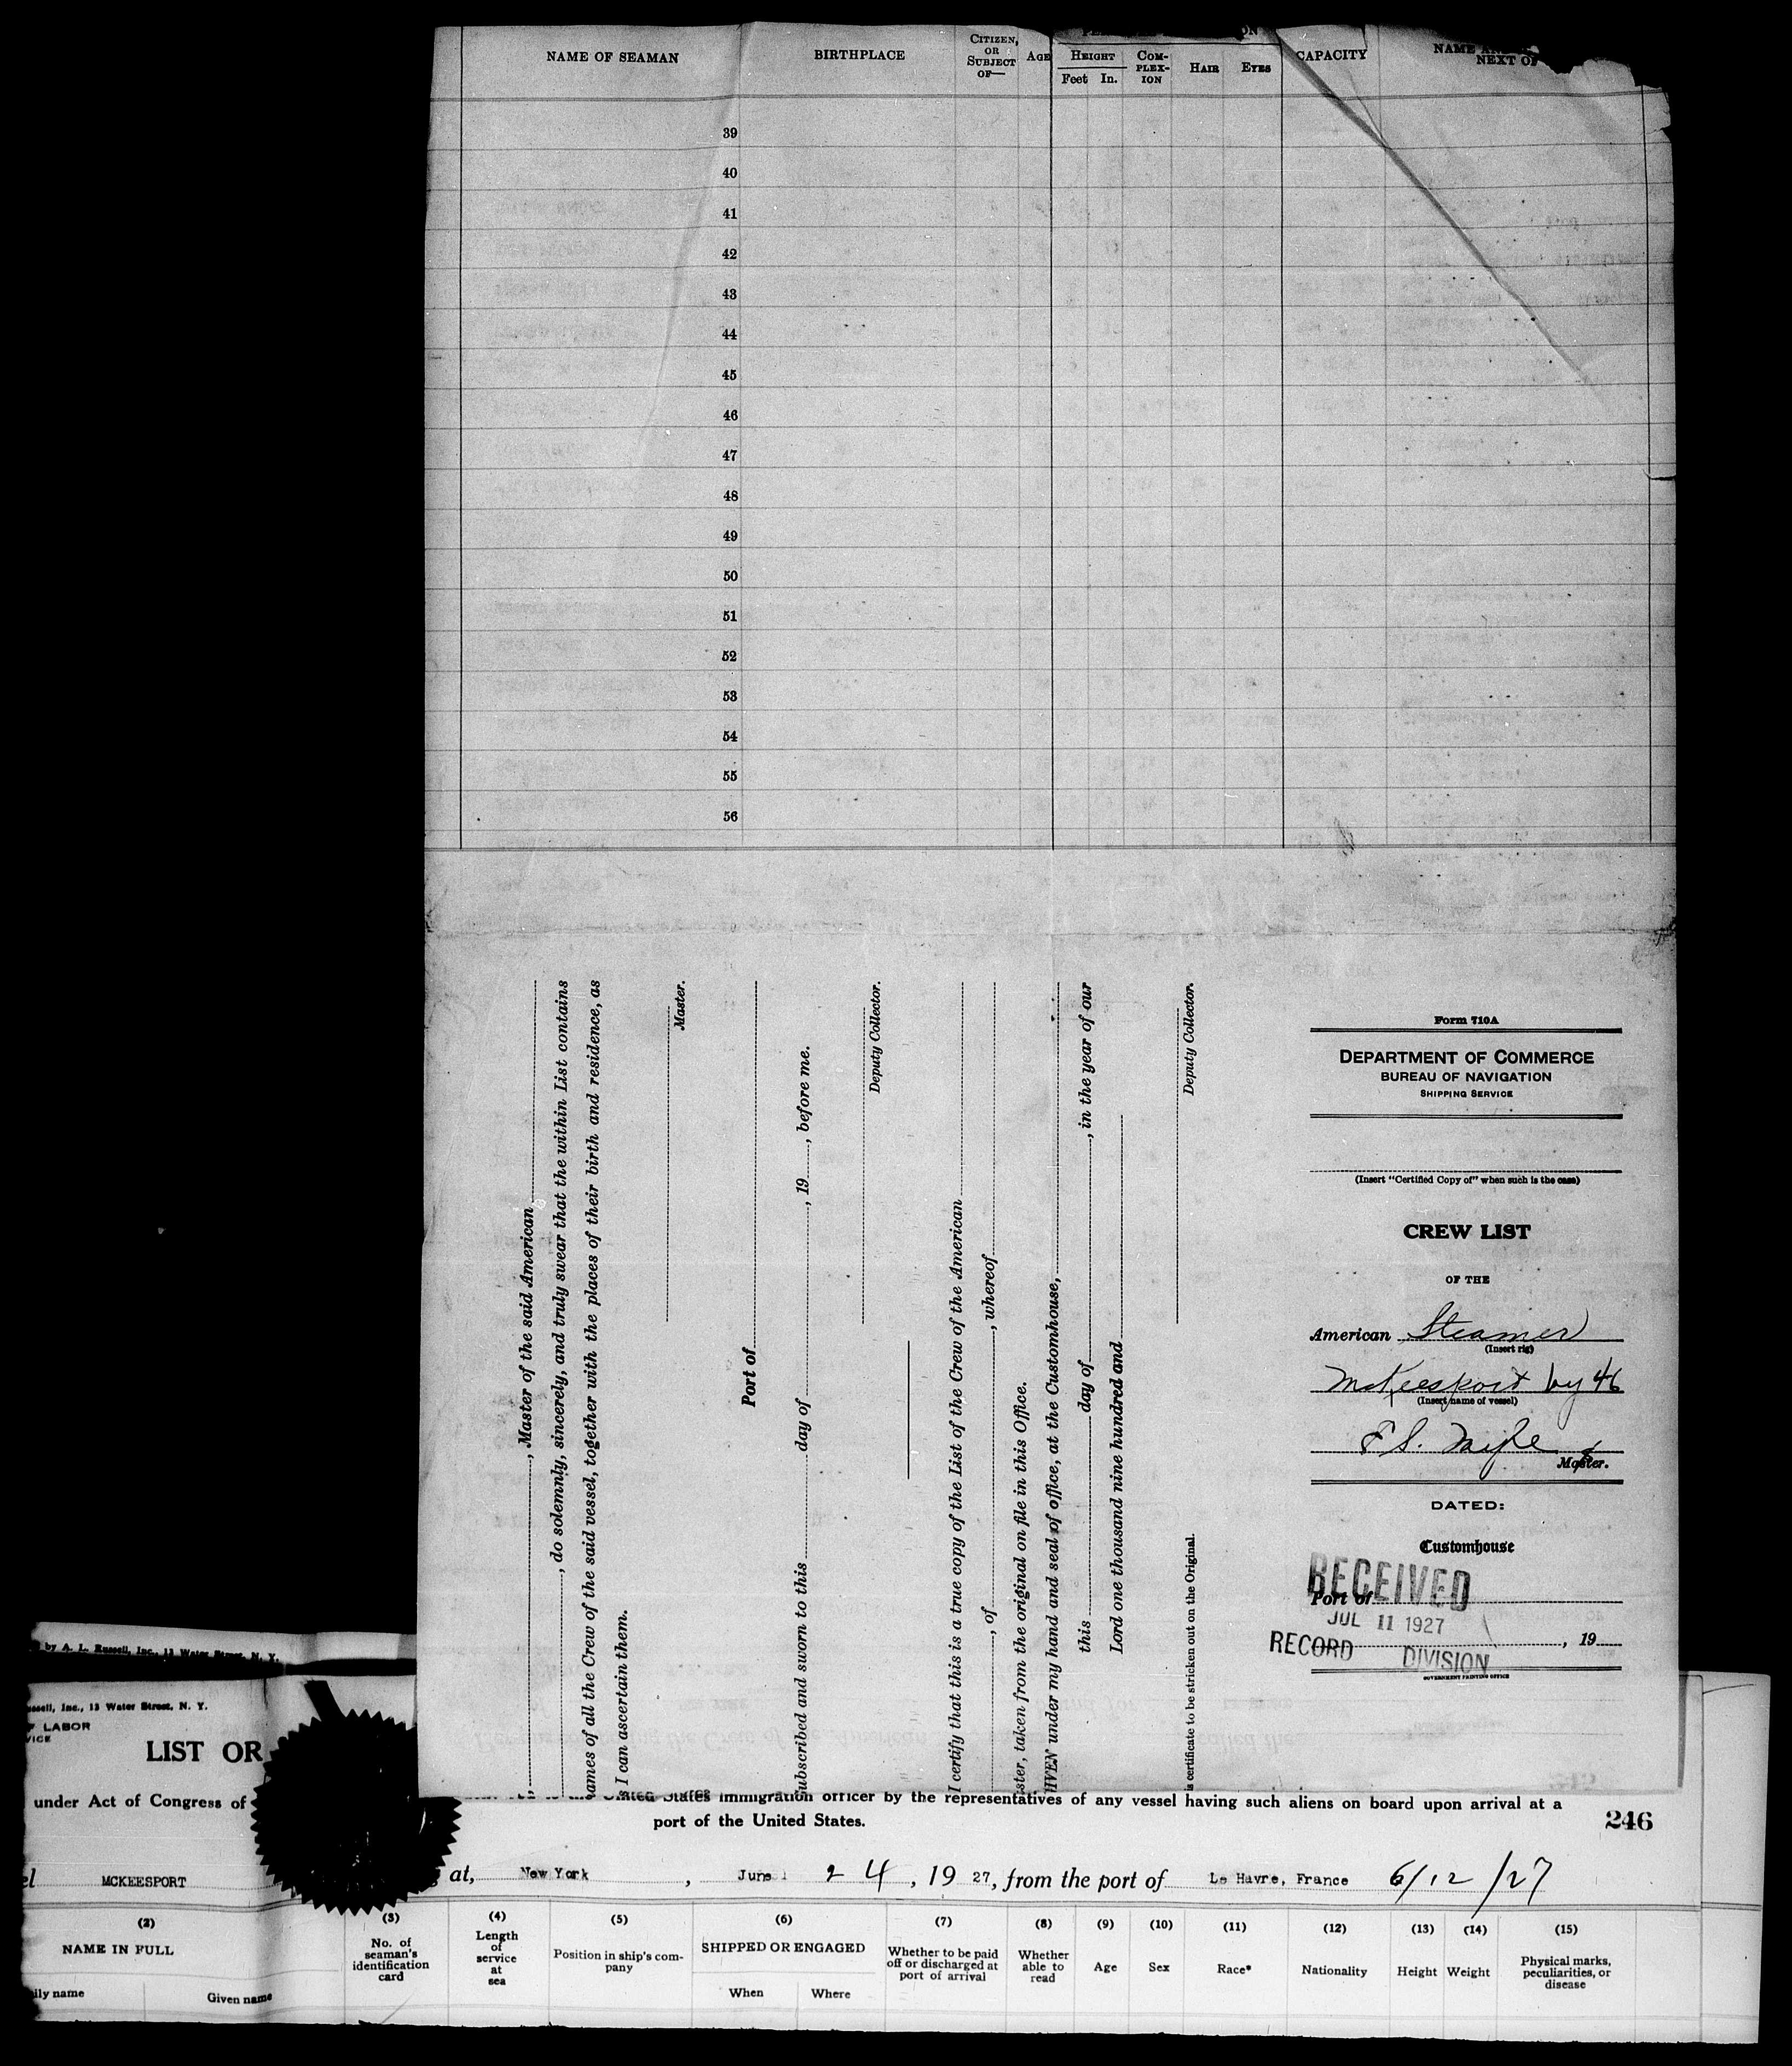 NAME OF SEAMAN
BIRTHPLACE
CITIZEN, OR SUBJECT OF—
AGE
HEIGHT
Feet In.
COM-PLEX-ION
HAIR
EYES
CAPACITY
NEXT OF
39
40
41
42
43
44
45
46
47
48
49
50
51
52
53
54
55
56
, Master of the said American
, do solemnly, sincerely, and truly swear that the within List contains
names of all the Crew of the said vessel, together with the places of their birth and residence, as
I can ascertain them.
Master.
Port of
ubscribed and sworn to this day of , 19 , before me.
Deputy Collector.
I certify that this is a true copy of the List of the Crew of the American
, of , whereof
ster, taken from the original on file in this Office.
IVEN under my hand and seal of office, at the Customhouse,
this day of , in the year of our
Lord one thousand nine hundred and
Deputy Collector.
is certificate to be stricken out on the Original.
Form 710A
DEPARTMENT OF COMMERCE
BUREAU OF NAVIGATION
SHIPPING SERVICE
(Insert "Certified Copy of" when such is the case)
CREW LIST
OF THE
American Steamer
(Insert rig)
McKeesport by 46
(Insert name of vessel)
Master.
DATED:
Customhouse
RECEIVED
Port of
JUL 11 1927
, 19
RECORD DIVISION
GOVERNMENT PRINTING OFFICE
by A. L. Russell, Inc., 13 Water Street, N. Y.
ussell, Inc., 13 Water Street, N. Y.
F LABOR
VICE
LIST OR
under Act of Congress of
United States immigration officer by the representatives of any vessel having such aliens on board upon arrival at a
port of the United States.
246
el MCKEESPORT
g at, New York , June 24, 19 27, from the port of Le Havre, France 6/12/27
(2)
NAME IN FULL
ily name
Given name
(3)
No. of seaman's identification card
(4)
Length of service at sea
(5)
Position in ship's com-pany
(6)
SHIPPED OR ENGAGED
When
Where
(7)
Whether to be paid off or discharged at port of arrival
(8)
Whether able to read
(9)
Age
(10)
Sex
(11)
Race*
(12)
Nationality
(13)
Height
(14)
Weight
(15)
Physical marks, peculiarities, or disease